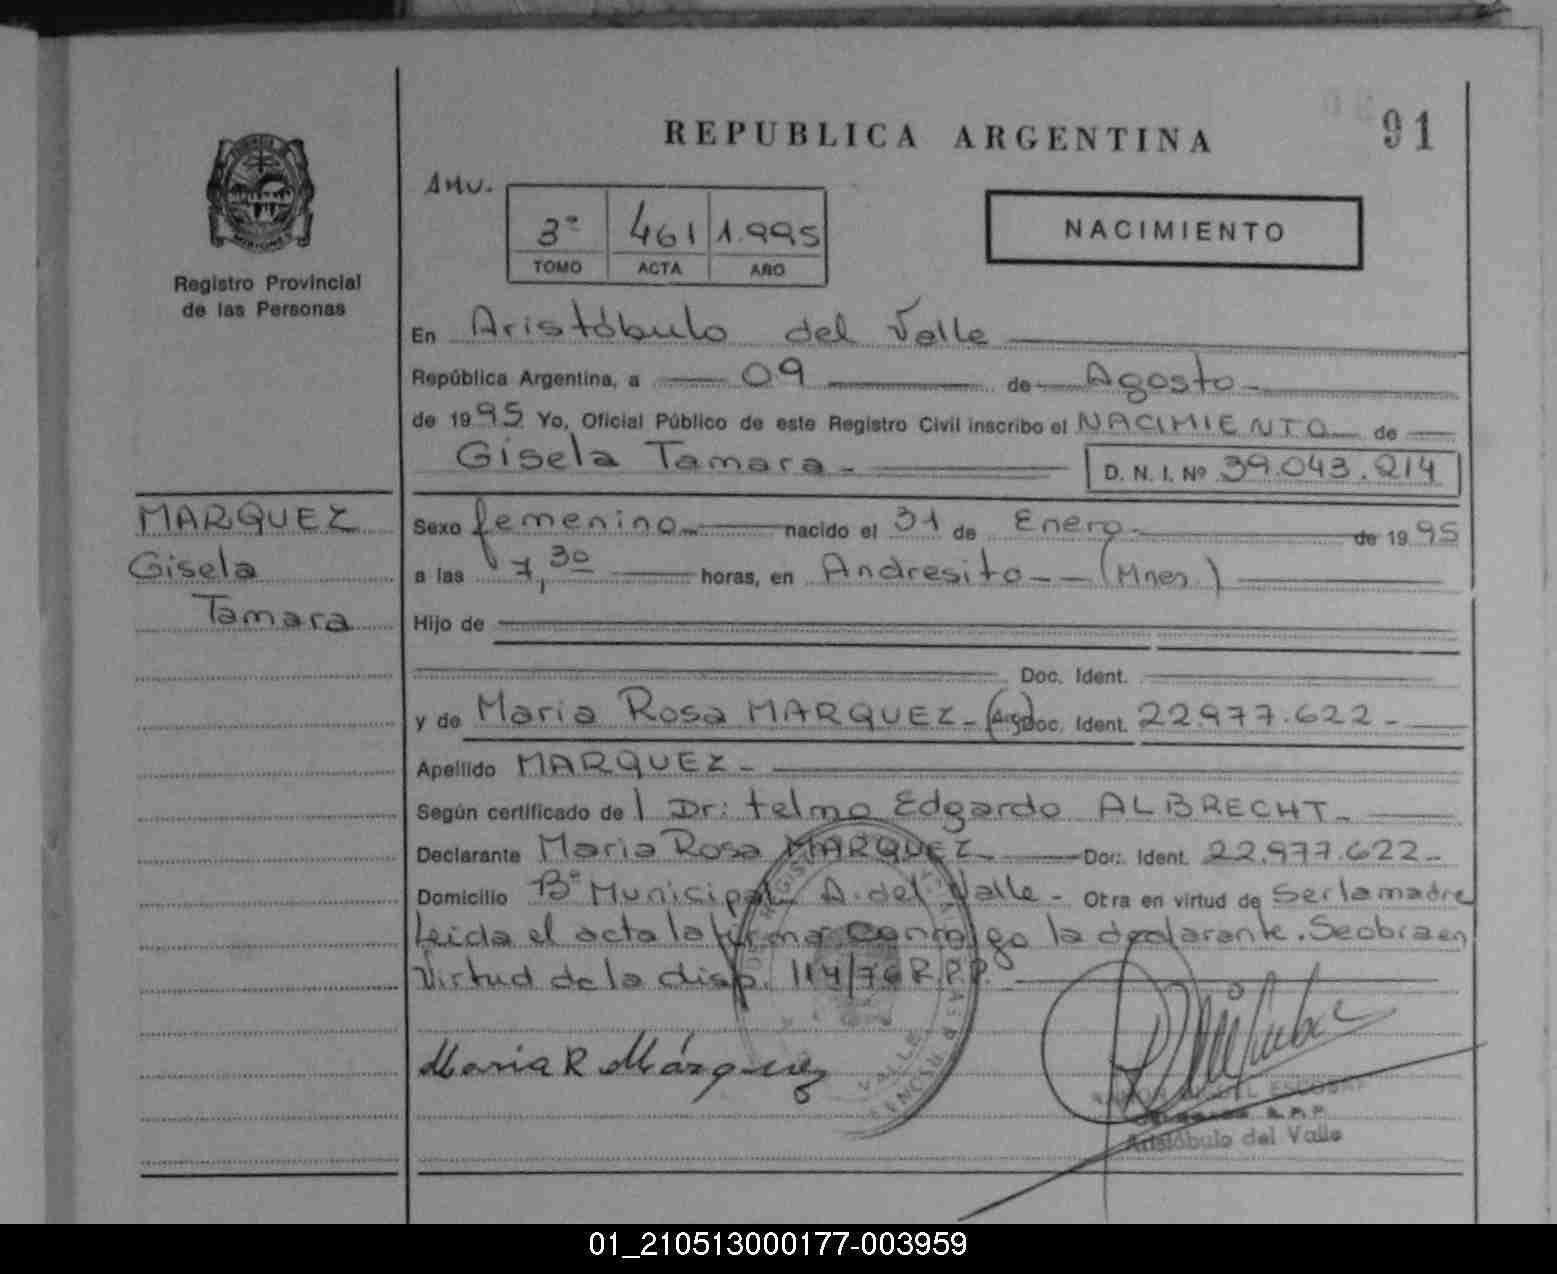 REPUBLICA ARGENTINA
91
Registro Provincial
de las Personas
3º 461 1.995
TOMO ACTA AÑO
NACIMIENTO
En Aristóbulo del Valle
República Argentina, a 09 de Agosto
de 1995 Yo, Oficial Público de este Registro Civil inscribo el NACIMIENTO de
Gisela Tamara - D. N. I. Nº 39.043.214
MARQUEZ
Gisela
Tamara
Sexo femenino nacido el 31 de Enero de 1995
a las 7,30 horas, en Andresito - - (Mnes.)
Hijo de
Doc. Ident.
y de Maria Rosa MARQUEZ - (Arg) Doc. Ident. 22.977.622 -
Apellido MARQUEZ -
Según certificado del Dr: telmo Edgardo ALBRECHT -
Declarante Maria Rosa MARQUEZ Doc. Ident. 22.977.622 -
Domicilio Bº Municipal A. del Valle - Otra en virtud de Ser la madre
Leida el acta la firma conmigo la declarante. Se obra en
Virtud de la disp. 114/76 R.P.P.
Maria R Márquez
ESCOBAR
R.P.P.
Aristóbulo del Valle
01_210513000177-003959